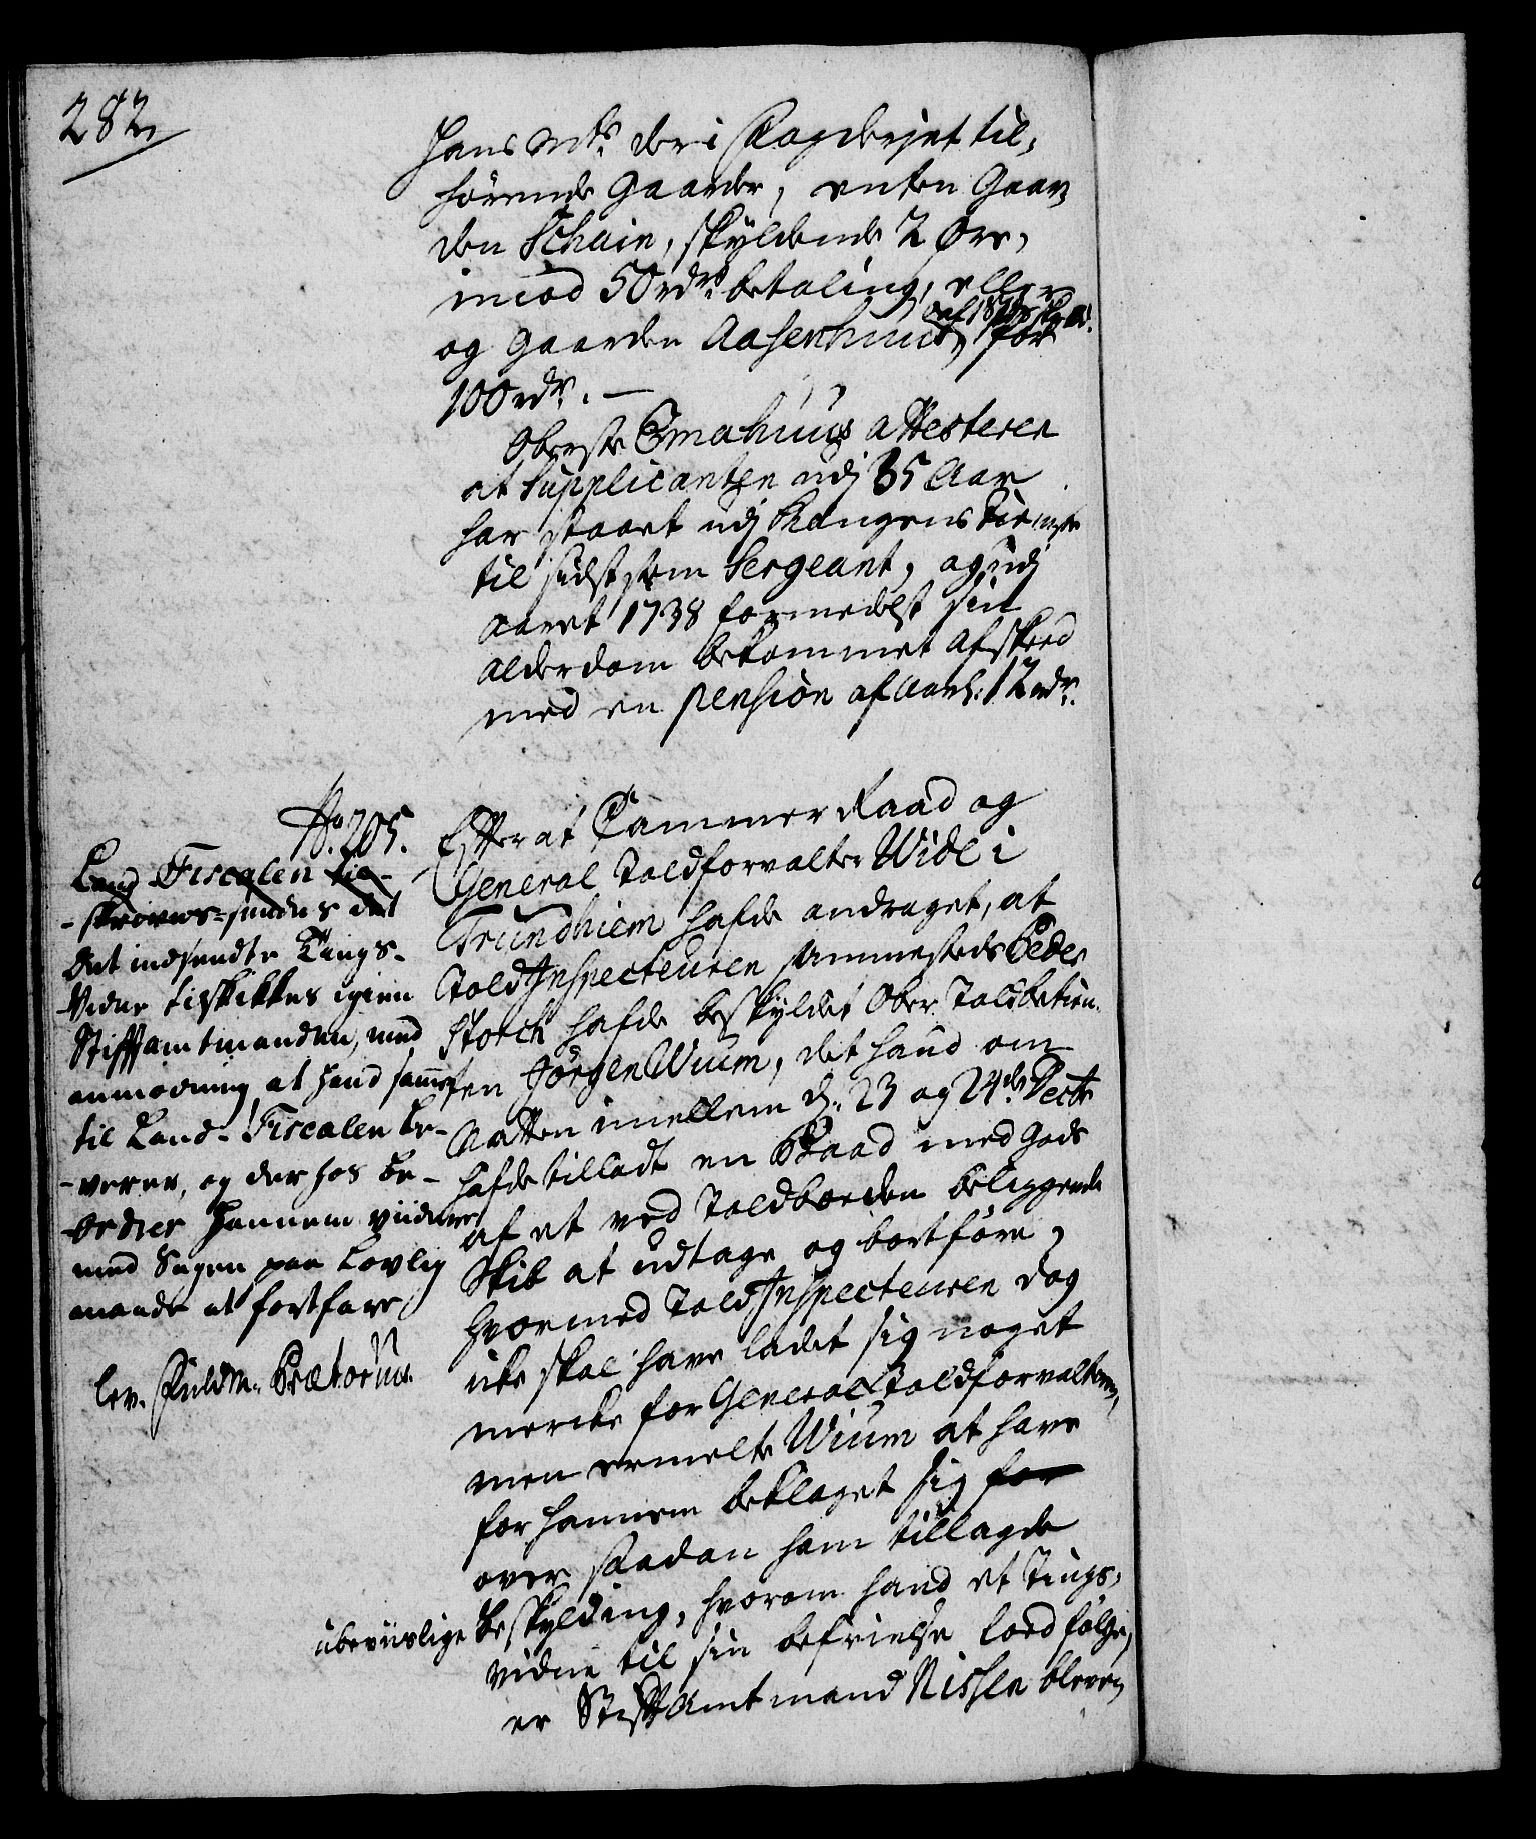 282
Hans Mts. der i Fogderiet til-
hörende Gaarder, enten Gaar-
den Schain, skyldende 2 Øre,
imod 50 rdrs. betaling, eller
og Gaarden Aasenhuus, for
100 rdr. —
Oberste Emahuus attesterer
at Supplicanten udj 35 Aar
har staaet udj Kongens Tieniste
til sidst som Sergeant, og udj
Aaret 1738 formedelst sin
Alderdom bekommet Afskeed
med en pension af Aarl: 12 rdr.
No. 205.
Land Fiscalen til-
-skrives-sendes det
Det indsendte Tings-
Vidne tilskikkes igien
Stifftamtmanden, med
anmodning, at hand samme
til Land-Fiscalen le-
-verer, og derhos be-
-ordrer Hannem viidere
med Sagen paa Lovlig
maade at fortfare
lev. Fuldm. Prætorius.
Effterat Cammer Raad og
General Toldforvalter Wide i
Trundhiem hafde andraget, at
Told Inspecteuren sammesteds Peder
Storch hafde beskyldet Ober Toldbetien-
ten Jörgen Wium, det hand om
Natten imellem d: 23 og 24de Decbr
hafde tilladt en Baad med Gods
af et ved Toldboeden beliggende
Skib at udtage og bortföre,
hvormed Told Inspecteuren dog
icke skal have ladet sig noget
mercke for General Toldforvalteren,
men ermelte Wium at have
for hannem beklaget sig for
over saadan ham tillagde
ubeviislige Beskylding, hvorom hand et Tings-
vidne til sin befrielse loed følge,
er Stifft Amtmand Nissen bleven